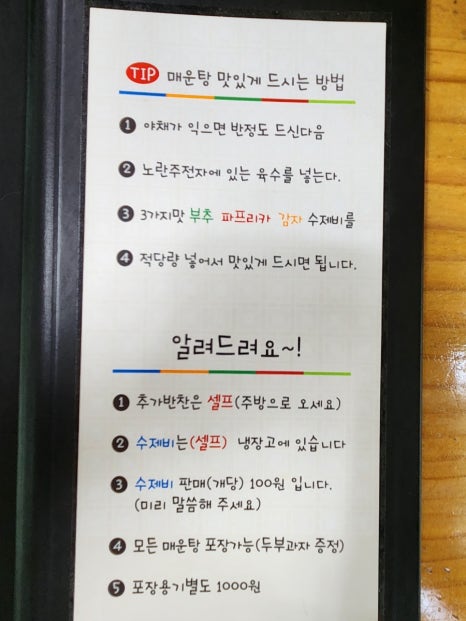 TIP 매운탕 맛있게 드시는 방법
1 야채가 익으면 반정도 드신다음
2 노란주전자에 있는 육수를 넣는다.
3 3가지맛 부추 파프리카 감자 수제비를
4 적당량 넣어서 맛있게 드시면 됩니다.
알려드려요~!
1 추가반찬은 셀프(주방으로 오세요)
2 수제비는(셀프) 냉장고에 있습니다
3 수제비 판매(개당) 100원 입니다.
(미리 말씀해 주세요)
4 모든 매운탕 포장가능(두부과자 증정)
5 포장용기별도 1000원